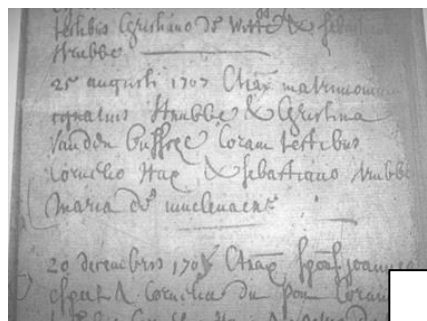 testibus Christiano de Witte & Sebast
Strubbe
25 augusti 1707 Ctrax matrimonium
egnatius Strubbe & Christina
vanden Bussche Coram testibus
Cornelio Hax & Sebastiano Strubbe
Maria de
20 decembris 170 Ctrax spons joannes
& Cornelia du pon Coram